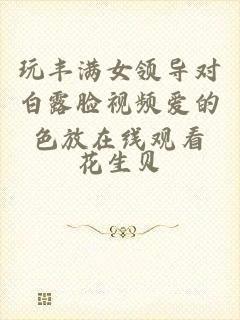 玩丰满女领导对
白露脸视频爱的
色放在线观看
花生贝